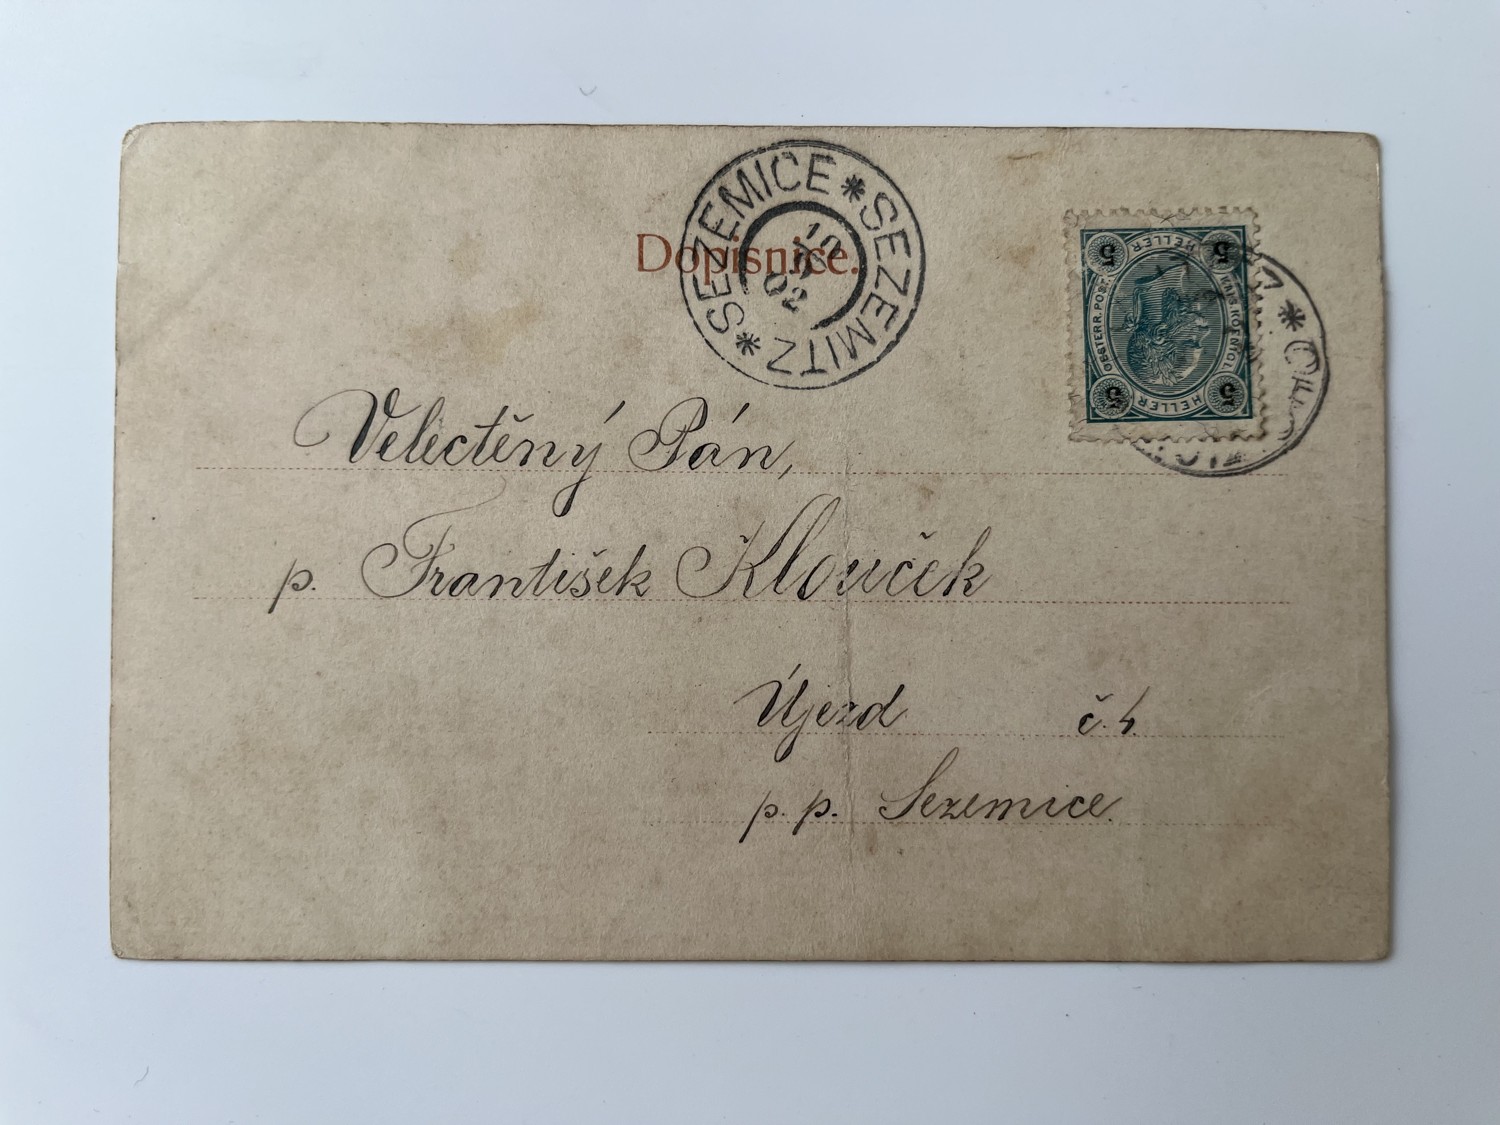 Dopisnice.
SEZEMICE * SEZEMITZ *
10
02
5 HELLER 5
KAIS. KOENIGL. OESTERR. POST.
5 HELLER 5
Velectěný Pán,
p. František Klouček
Újezd č. 4.
p. p. Sezemice.